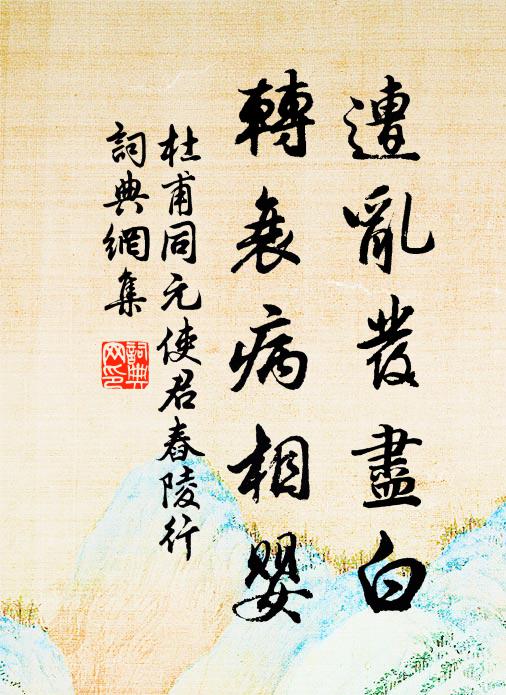 遭亂發盡白
轉衰病相嬰
杜甫同元使君舂陵行
詞典網集
詞典網印